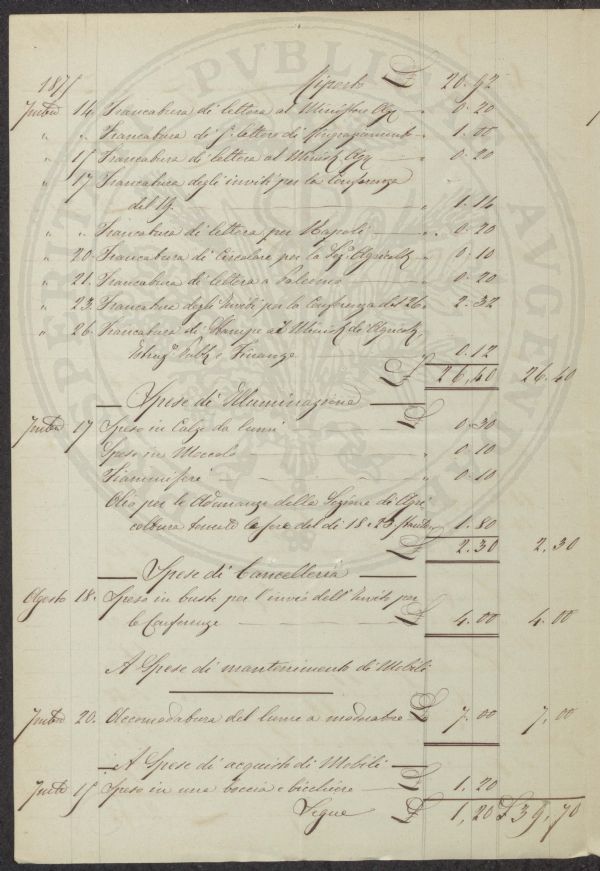 PVBLICA
PROSPERITAS
AVGENDA
1875 Riporto £ 20.92
7mbre 14 Francatura di lettera al Ministro Agr. " 0.20
" " Francatura di 5 lettere di Ringraziamento " 1.00
" 15 Francatura di lettera al Minist. Agr. " 0.20
" 17 Francatura degli inviti per la Conferenza
del 19. " 1.16
" " Francatura di lettera per Napoli " 0.20
" 20. Francatura di Circolare per la Sez.e Agricolt. " 0.10
" 21. Francatura di lettera a Palermo " 0.20
" 23. Francatura degli Inviti per la Conferenza del 26. " 2.32
" 26. Francatura di Stampe al Minist. di Agricolt.
Istruz.e Pubb. e Finanze " 0.12
£ 26,40 26.40
Spese di Illuminazione
7mbre 17 Spese in Calze da lumi £ 0.30
Spese in Moccolo " 0.10
Fiammiferi " 0.10
Olio per le Adunanze della Sezione di Agri
coltura tenute le sere del dì 18 e 25 stante 1.80
£ 2.30 2.30
Spese di Cancelleria
Agosto 18. Spese in buste per l'invio dell'Invito per
le Conferenze £ 4.00 4.00
A Spese di mantenimento di Mobili
7mbre 20. Accomodatura del lume a moderatore £ 7.00 7,00
A Spese di acquisto di Mobili
7mbre 15 Spese in una boccia e bicchiere £ 1,20
Segue £ 1,20 £ 39,70